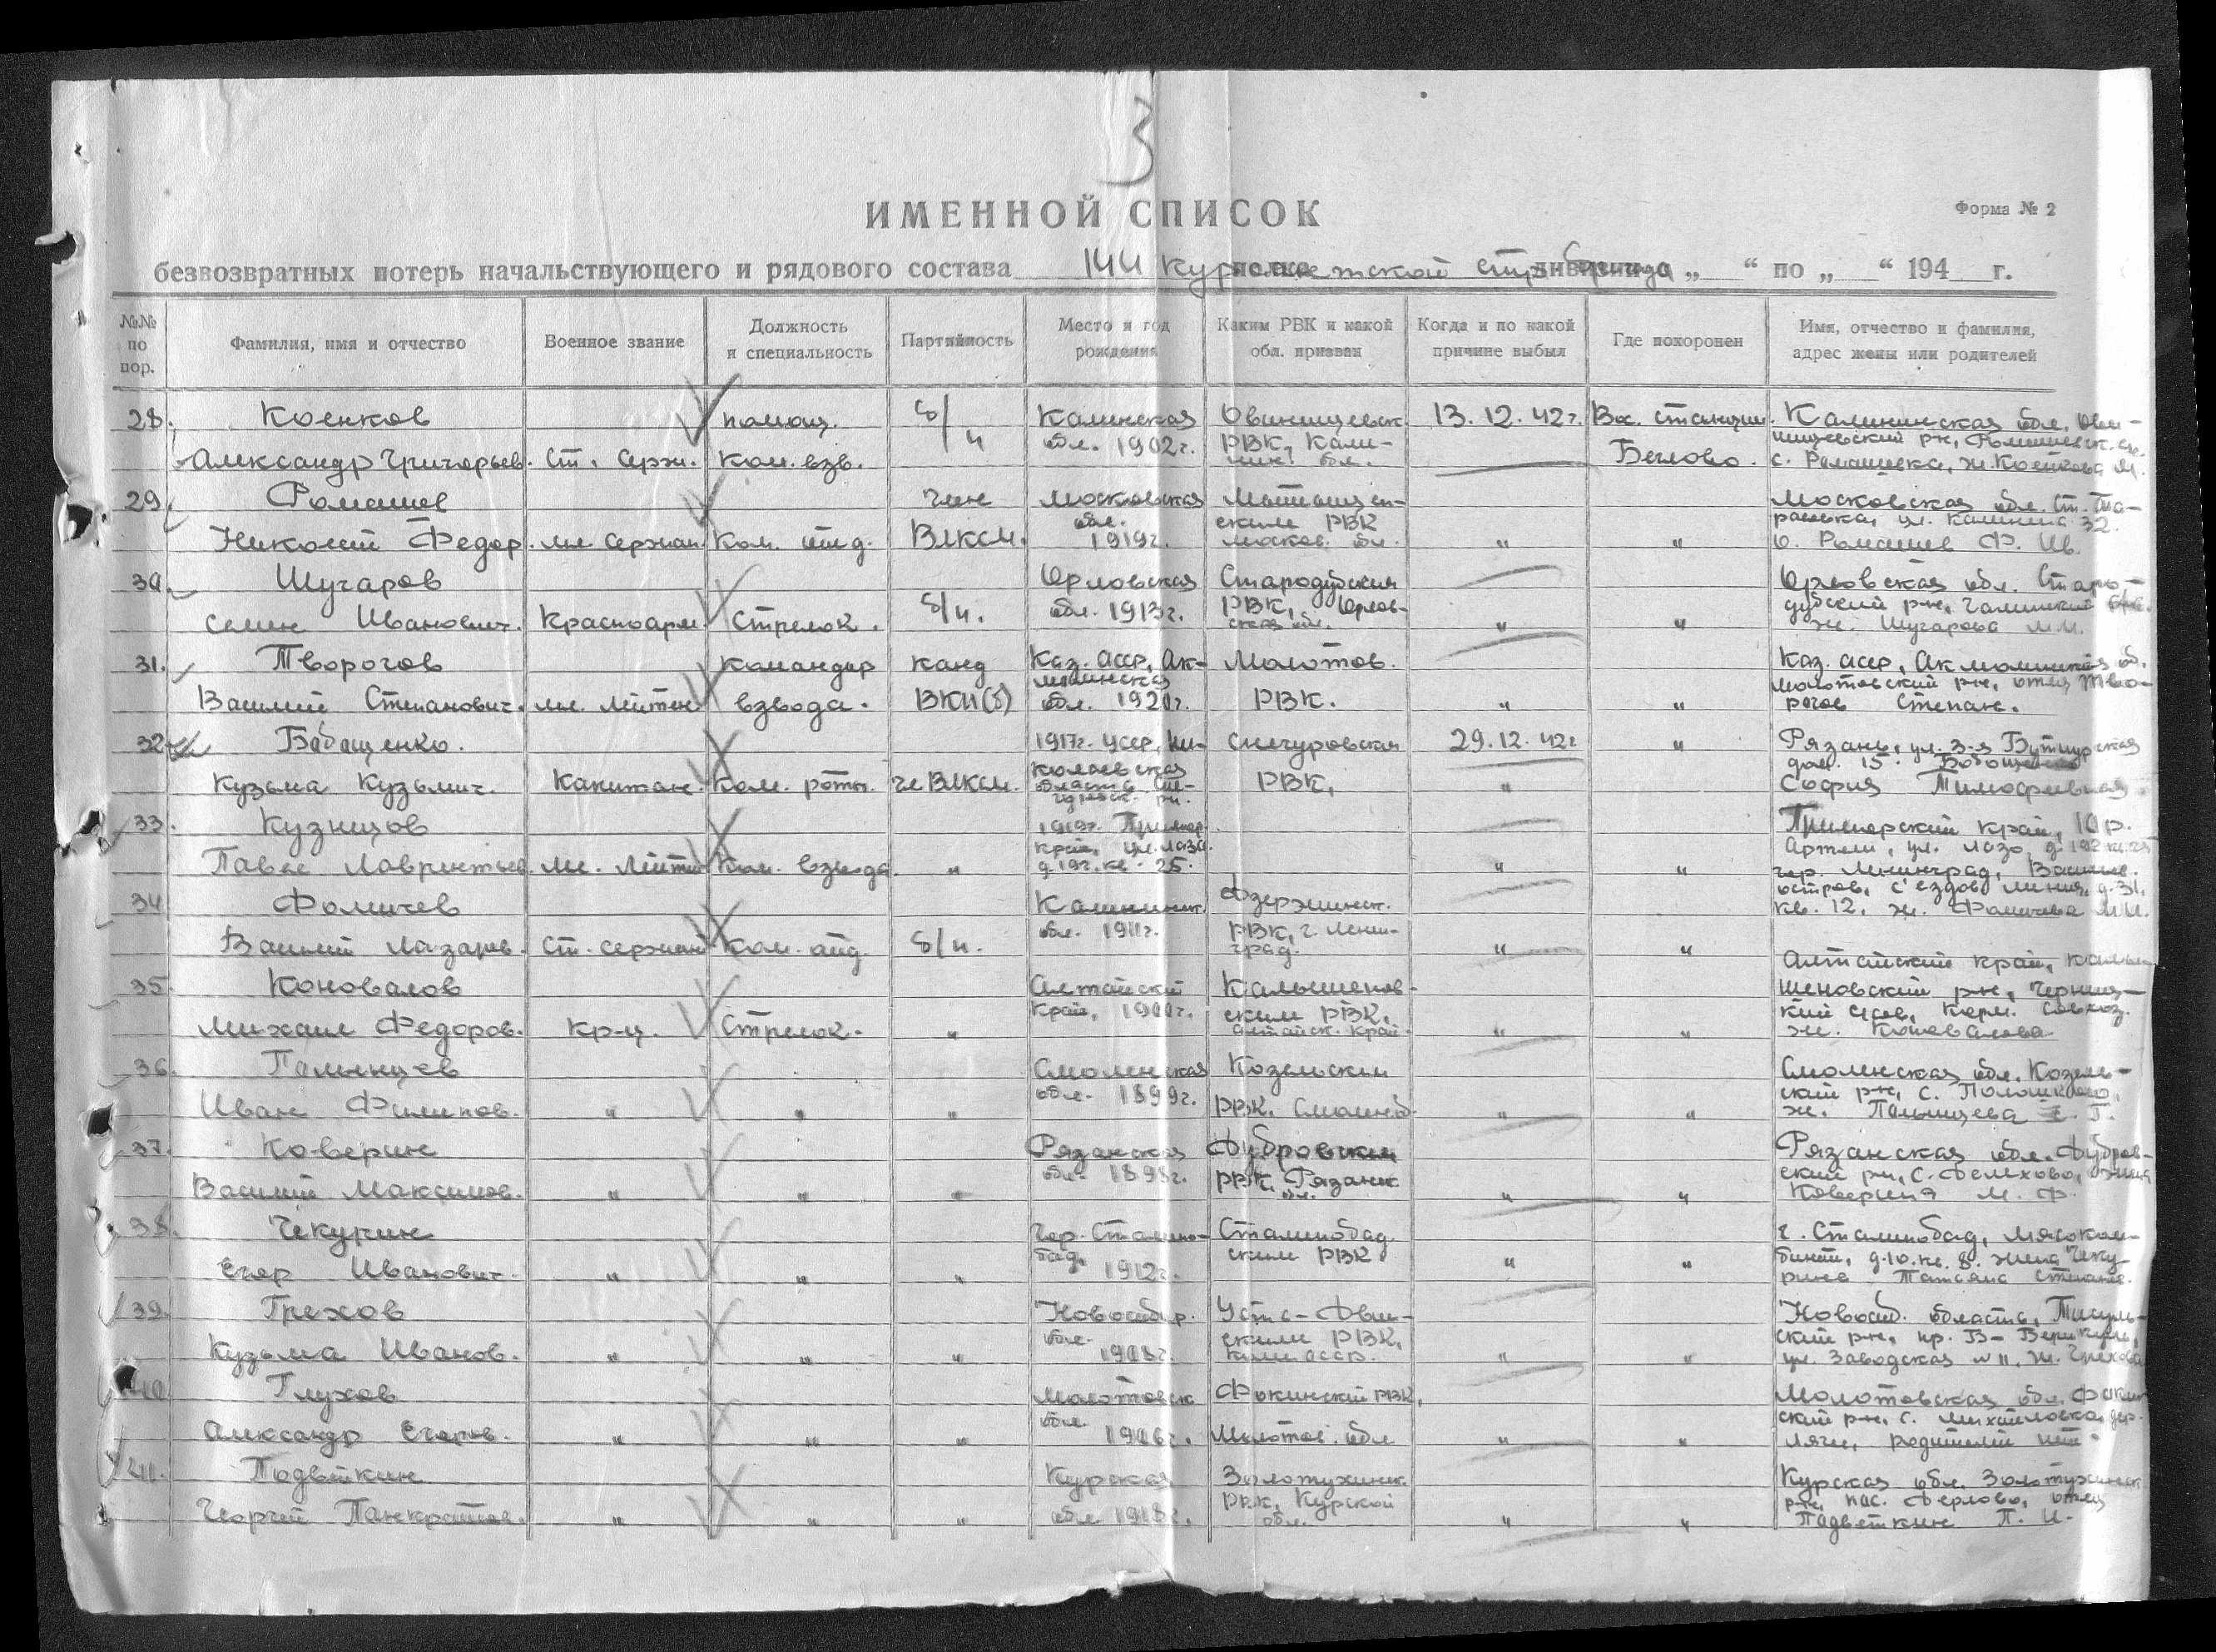 3
ИМЕННОЙ СПИСОК
Форма № 2
безвозвратных потерь начальствующего и рядового состава 144 курсантской стр. бригада „ “ по „ “ 194 г.
№№ по пор.
Фамилия, имя и отчество
Военное звание
Должность и специальность
Партийность
Место и год рождения
Каким РВК и какой обл. призван
Когда и по какой причине выбыл
Где похоронен
Имя, отчество и фамилия, адрес жены или родителей
28. Коенков помощ. б/п Калинская Овинищевск. 13.12.42г. Вос. станции Калининская обл. Ови-
обл. 1902г. РВК, Кали-
Александр Григорьев. Ст. Серж. Ком. взв. Белово. с. Ромашевка, ж. Коенкова М.
29 Ромашев член Московская Мытищен- Московская обл. Ст. Та-
обл. ским РВК расовка, ул. Калинина 32.
Николай Федор. мл. Сержан. Ком. отд. ВЛКСМ. 1919г. Москов. обл. " " О. Ромашев Ф. Ив.
30 Шугаров Орловская Стародубским Орловская обл. Старо-
б/п. обл. 1913г. РВК, Орлов- дубский р-н,
Семен Иванович. Красноарм. Стрелок. ская обл. " " ж. Шугарова М.И.
31. Творогов командир канд Каз. АССР, Ак- Молотов. Каз. АССР, Акмолинская об.
молинская Молотовский р-н, отец Тво-
Василий Степанович. мл. Лейтен. взвода. ВКП(б) обл. 1920г. РВК. " " рогов Степан.
32 Бабащенко. 1917г. УССР, Ни- Снегуровская 29.12.42г. " Рязань, ул. 3-я Бутырская
колаевская дом. 15.
Кузьма Кузьмич. Капитан. Ком. роты. чл ВЛКСМ. область РВК. " София Тимофеевна
33. Кузнецов 1919г. Примор. Приморский край,
край, ул. Лазо. Артем, ул. Лазо, д. 192 кв. 25
Павел Лаврентьев. мл. Лейтен. Ком. взвода. " д. 192. кв. 25. " " гор. Ленинград, Василь.
остров, с'ездов. линия, д. 31,
34 Фомичев Калининск. Дзержинск. кв. 12, ж. Фомичева М.И.
обл. 1911г. РВК, г. Ленин-
Василий Лазарев. ст. сержант Ком. отд. б/п. град. " "
Алтайский край,
35 Коновалов Алтайский Калышенов- шеновский р-н,
край, 1900г. ским РВК,
Михаил Федоров. кр-ц. Стрелок. " Алтайск. край. " " ж. Коновалова.
36. Пальнцев Смоленская Козельским Смоленская обл. Козель-
обл. 1899г. ский р-н, с.
Иван Филипов. " " " РВК. Смоленск. " " ж. Пальнцева
37. Коверин Рязанская Дубровским Рязанская обл. Дубров-
обл. 1898г. РВК, Рязанк ский р-н, с. Делехово, жена
Василий Максимов. " " " обл. " " Коверина М. Ф.
38. Чекурин гор. Сталино- Сталинобад. г. Сталинобад, Мясоком-
бад, ским РВК бинат, д. 10. кв. 8. жена Чеку-
Егор Иванович. " " " 1912г. " " рина Татьяна Степан.
39. Грехов Новосибир. Усть-Абаи- Новосиб. область, Тисуль-
обл. скими РВК, ский р-н,
Кузьма Иванов. " " " 1908г. " " ул. Заводская № 11, ж. Грехова
40 Глухов Молотовск Фокинский РВК, Молотовская обл. Фокин-
обл. ский р-н, с. Михайловка, дер.
Александр Егоров. " " " 1906г. Молотов. обл. " " родителей нет.
41. Подветкин Курская Золотухинск. Курская обл. Золотухинск
РВК, Курской р-н, пос. отец
Георгий Панкратов. " " " обл 1918г. обл. " " Подветкин П. И.